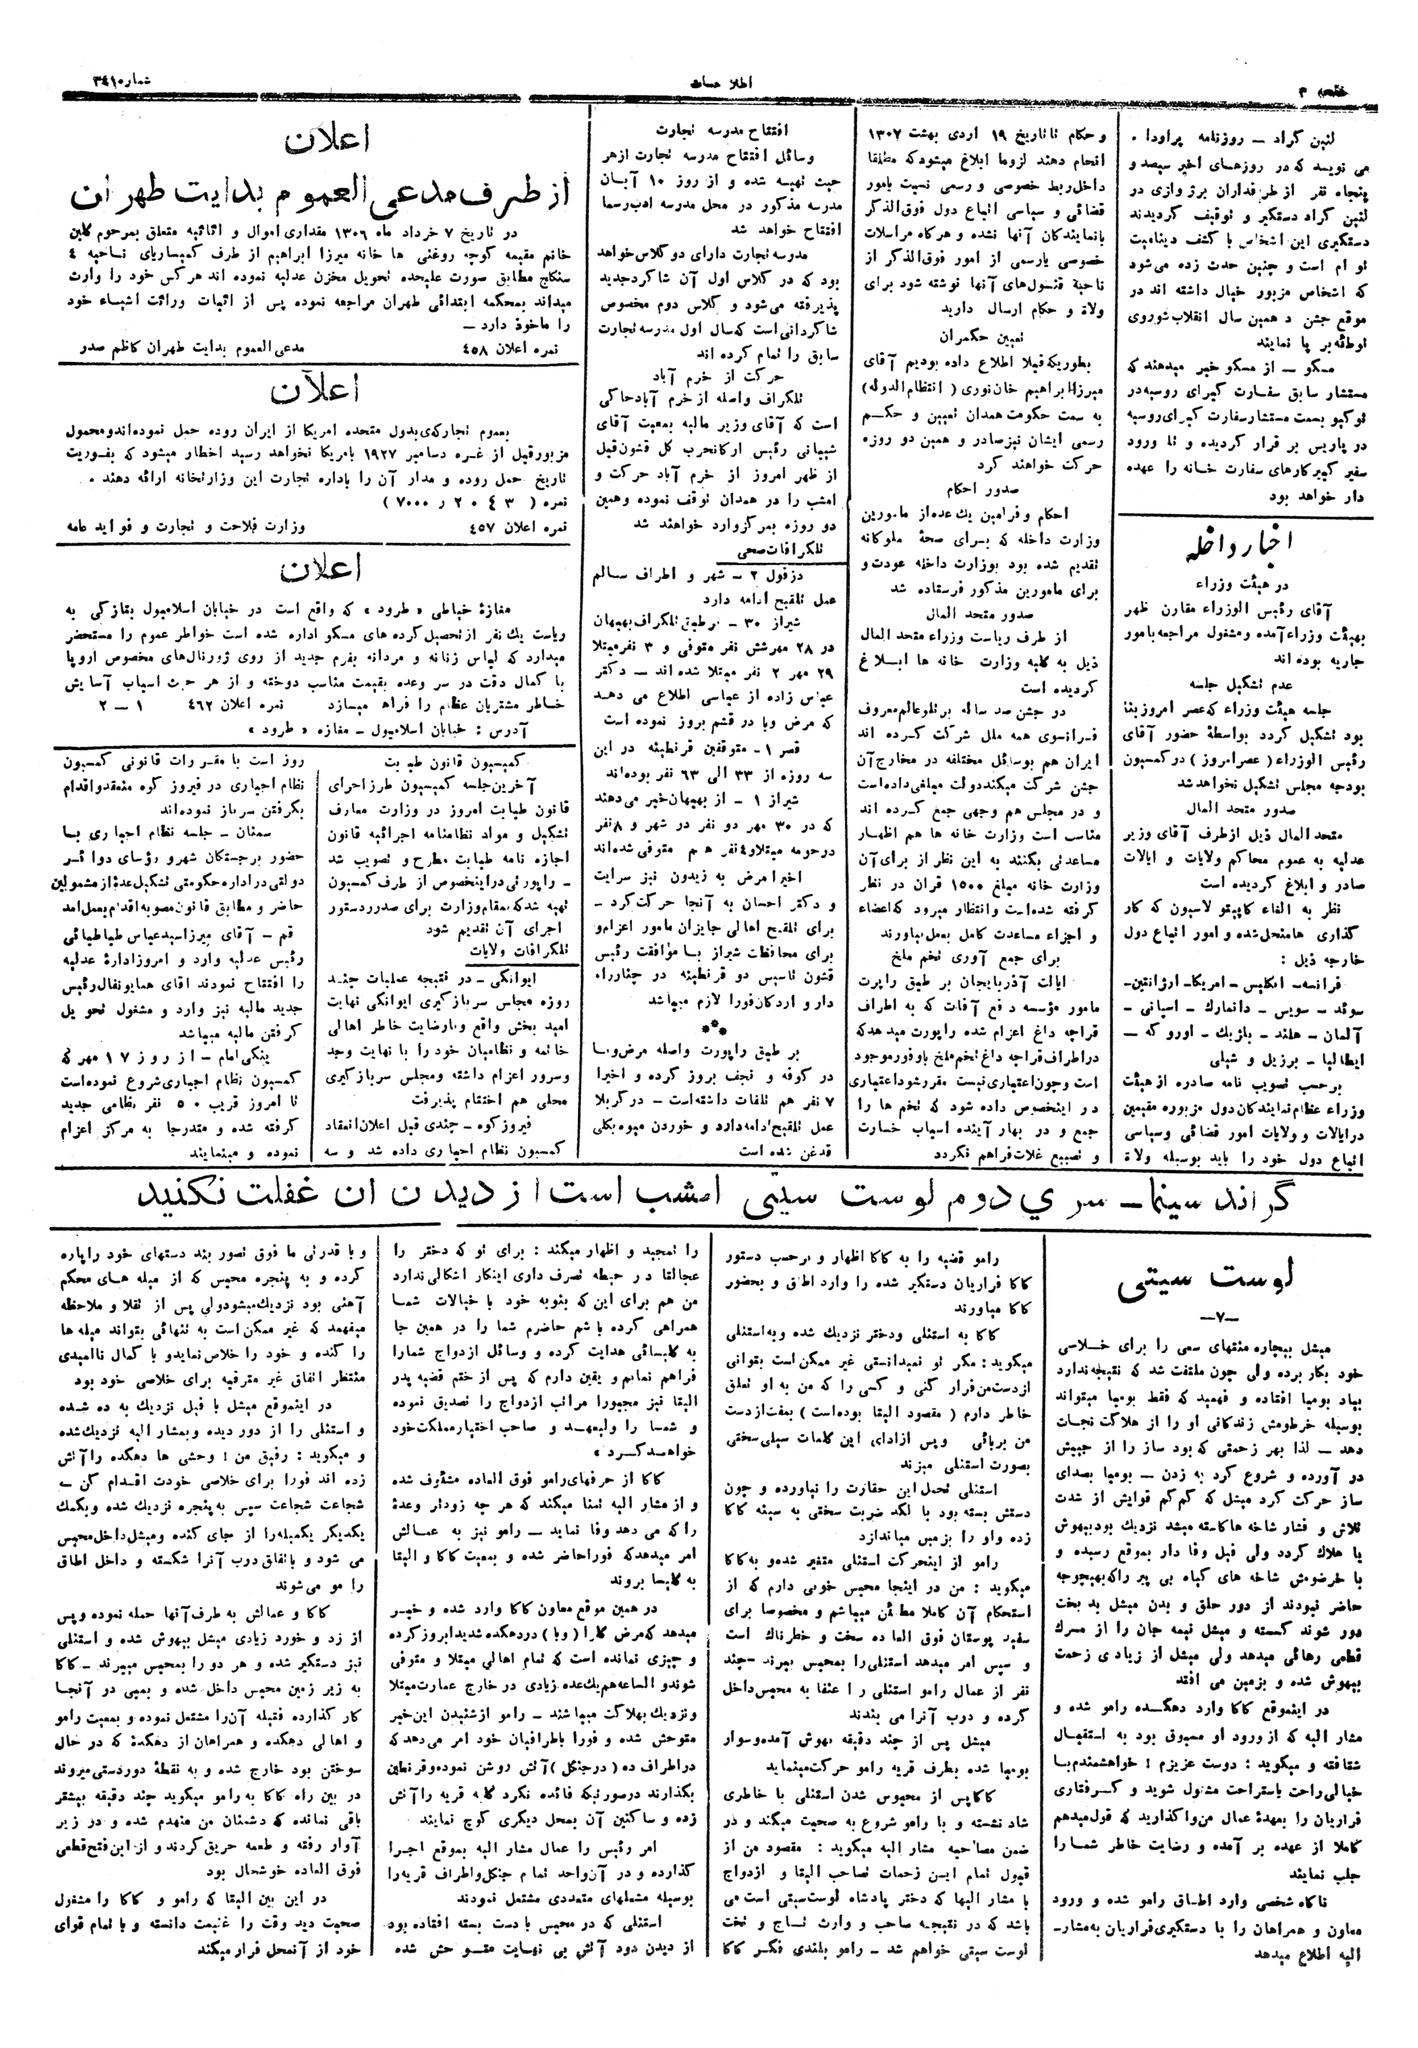 صفحه ۳
اطلاعات
شماره ۳۴۱
لنین گراد – روزنامه پراودا .
می نویسد که در روزهای اخیر سیصد و
پنجاه نفر از طرفداران برتوازی در
لنین گراد دستگیر و توقیف کردیدند
دستگیری این اشخاص با کشف دینامیت
تو ام است و چنین حدث زده می‌شود
که اشخاص مزبور خیال داشته اند در
موقع جشن دهمین سال انقلاب شوروی
توطئه بر پا نمایند
مسکو – از مسکو خبر میدهند که
مستشار سابق سفارت کبرای روسیه در
توکیو بسمت مستشار سفارت کبرای روسیه
در پاریس بر قرار کردیده و تا ورود
سفیر کبیر کارهای سفارت خانه را عهده
دار خواهد بود
اخبار داخله
در هیئت وزراء
آقای رئیس الوزراء مقارن ظهر
بهیئت وزراء آمده ومشغول مراجعه بامور
جاریه بوده اند
عدم تشکیل جلسه
جلسه هیئت وزراء که عصر امروز بنا
بود تشکیل کردد بواسطهٔ حضور آقای
رئیس الوزراء ( عصر امروز ) در کمسیون
بودجه مجلس تشکیل نخواهد شد
صدور متحد المال
متحد المال ذیل از طرف آقای وزیر
عدلیه به عموم محاکم ولایات و ایالات
صادر و ابلاغ کردیده است
نظر به الغاء کاپیتو لاسیون که کار
گذاری ها منحل شده و امور اتباع دول
خارجه ذیل :
فرانسه – انکلیس – امریکا – ارژانتین –
سوئد – سویس – دانمارك – اسپانی –
آلمان – هلند – بلژیك – اورو که –
ایطالیا – برزیل و شیلی
بر حسب تصویب نامه صادره از هیئت
وزراء عظام نمایندکان دول مزبوره مقیمین
در ایالات و ولایات امور قضائی و سیاسی
اتباع دول خود را باید بوسیله ولاة
و حکام تا تاریخ ۱۹ اردی بهشت ۱۳۰۷
انجام دهند لزوما ابلاغ میشود که مطلقا
داخل ربط خصوصی و رسمی نسبت بامور
قضائی و سیاسی اتباع دول فوق الذکر
با نمایندکان آنها نشده و هرکاه مراسلات
خصوصی یا رسمی از امور فوق الذکر از
ناحیهٔ قنسول‌های آنها نوشته شود برای
ولاة و حکام ارسال دارید
تعیین حکمران
بطوریکه قبلا اطلاع داده بودیم آقای
میرزا ابراهیم خان نوری ( انتظام الدوله )
به سمت حکومت همدان تعیین و حکم
رسمی ایشان نیز صادر و همین دو روزه
حرکت خواهند کرد
صدور احکام
احکام و فرامین یك عده از مامورین
وزارت داخله که برای صحهٔ ملوکانه
تقدیم شده بود بوزارت داخله عودت و
برای مامورین مذکور فرستاده شد
صدور متحد المال
از طرف ریاست وزراء متحد المال
ذیل به کلیه وزارت خانه ها ابلاغ
کردیده است
در جشن صد ساله برتلو عالم معروف
فرانسوی همه ملل شرکت کرده اند
ایران هم بوسائل مختلفه در مخارج آن
جشن شرکت میکند دولت مبلغی داده است
و در مجلس هم وجهی جمع کرده اند
مناسب است وزارت خانه ها هم اظهار
مساعدتی بکنند به این نظر از برای آن
وزارت خانه مبلغ ۱۵۰۰ قران در نظر
گرفته شده است و انتظار میرود که اعضاء
و اجزاء مساعدت کامل بعمل بیاورند
برای جمع آوری تخم ملخ
ایالت آذربایجان بر طبق راپرت
مامور مؤسسه دفع آفات که به اطراف
قراجه داغ اعزام شده راپورت میدهد که
در اطراف قراجه داغ تخم ملخ باوفور موجود
است و چون اعتباری نیست مقرر شود اعتباری
در اینخصوص داده شود که تخم ها را
جمع و در بهار آینده اسباب خسارت
و تضییع غلات فراهم نکردد
افتتاح مدرسه تجارت
وسائل افتتاح مدرسه تجارت از هر
حیث تهیه شده و از روز ۱۰ آبان
مدرسه مذکور در محل مدرسه ادب رسما
افتتاح خواهد شد
مدرسه تجارت دارای دو کلاس خواهد
بود که در کلاس اول آن شاکرد جدید
پذیرفته می‌شود و کلاس دوم مخصوص
شاکردانی است که سال اول مدرسه تجارت
سابق را تمام کرده اند
حرکت از خرم آباد
تلگراف واصله از خرم آباد حاکی
است که آقای وزیر مالیه بمعیت آقای
شیبانی رئیس ارکانحرب کل قشون قبل
از ظهر امروز از خرم آباد حرکت و
امشب را در همدان توقف نموده و همین
دو روزه بمرکز وارد خواهند شد
تلگرافات صحی
دزفول ۲ – شهر و اطراف سالم
عمل تلقیح ادامه دارد
شیراز ۳۰ – بر طبق تلگراف بهبهان
در ۲۸ مهر شش نفر متوفی و ۳ نفر مبتلا
۲۹ مهر ۲ نفر مبتلا شده اند – دکتر
عباس زاده از عباسی اطلاع می دهد
که مرض وبا در قشم بروز نموده است
قصر ۱ – متوقفین قرنطینه در این
سه روزه از ۳۳ الی ۶۳ نفر بوده اند
شیراز ۱ – از بهبهان خبر می‌دهند
که در ۳۰ مهر دو نفر در شهر و ۸ نفر
در حومه مبتلا و ۴ نفر هم متوفی شده اند
اخیرا مرض به زیدون نیز سرایت
و دکتر احسان به آنجا حرکت کرد –
برای تلقیح اهالی جایزان مامور اعزام و
برای محافظت شیراز با موافقت رئیس
قشون تاسیس دو قرنطینه در چنارراه
دار و اردکان فورا لازم میباشد
***
بر طبق راپورت واصله مرض وبا
در کوفه و نجف بروز کرده و اخیرا
۷ نفر هم تلفات داشته است – در کربلا
عمل تلقیح ادامه دارد و خوردن میوه بکلی
قدغن شده است
اعلان
از طرف مدعی العموم بدایت طهران
در تاریخ ۷ خرداد ماه ۱۳۰۶ مقداری اموال و اثاثیه متعلق بمرحوم کلین
خانم مقیمه کوچه روغنی ها خانه میرزا ابراهیم از طرف کمیساریای ناحیه ۴
سنکلج مطابق صورت علیحده تحویل مخزن عدلیه نموده اند هر کس خود را وارث
میداند بمحکمه ابتدائی طهران مراجعه نموده پس از اثبات وراثت اشیاء خود
را ماخوذ دارد –
نمره اعلان ۴۵۸ مدعی العموم بدایت طهران کاظم صدر
اعلان
بعموم تجارکه‌ی بدول متحده امریکا از ایران روده حمل نموده اند و محمول
مزبور قبل از غره دسامبر ۱۹۲۷ بامریکا نخواهد رسید اخطار میشود که بفوریت
تاریخ حمل روده و مدار آن را باداره تجارت این وزارتخانه ارائه دهند .
نمره ( ۲۰۴۳ ر ۷۰۰۰ )
نمره اعلان ۴۵۷ وزارت فلاحت و تجارت و فواید عامه
اعلان
مغازهٔ خیاطی « طرود » که واقع است در خیابان اسلامبول بتازکی به
ریاست یك نفر از تحصیل کرده های مسکو اداره شده است خواطر عموم را مستحضر
میدارد که لباس زنانه و مردانه بفرم جدید از روی ژورنال‌های مخصوص اروپا
با کمال دقت در سر وعده بقیمت مناسب دوخته و از هر حیث اسباب آسایش
خاطر مشتریان عظام را فراهم میسازد نمره اعلان ۴۶۲ ۱ – ۲
آدرس : خیابان اسلامبول – مغازه « طرود »
کمیسیون قانون طبابت
آخرین جلسه کمسیون طرز اجرای
قانون طبابت امروز در وزارت معارف
تشکیل و مواد نظامنامه اجرائیه قانون
اجازه نامه طبابت مطرح و تصویب شد
– راپورتی در اینخصوص از طرف کمسیون
تهیه شد که بمقام وزارت برای صدور دستور
اجرای آن تقدیم شود
تلگرافات ولایات
ایوانکی – در نتیجه عملیات چند
روزه مجلس سرباز گیری ایوانکی نهایت
امید بخش واقع و با رضایت خاطر اهالی
خاتمه و نظامیان خود را با نهایت وجد
وسرور اعزام داشته و مجلس سرباز گیری
محلی هم اختتام پذیرفت
فیروزکوه – چندی قبل اعلان انعقاد
کمسیون نظام اجباری داده شد و سه
روز است با مقررات قانونی کمسیون
نظام اجباری در فیروز کوه منعقد و اقدام
بگرفتن سرباز نموده اند
سمنان – جلسه نظام اجباری با
حضور برجستکان شهر و رؤسای دوائر
دولتی در اداره حکومتی تشکیل عدهٔ از مشمولین
حاضر و مطابق قانون مصوبه اقدام بعمل آمد
قم – آقای میرزا سید عباس طباطبائی
رئیس عدلیه وارد و امروز ادارهٔ عدلیه
را افتتاح نمودند آقای همایونفال رئیس
جدید مالیه نیز وارد و مشغول تحویل
گرفتن مالیه میباشد
ینکی امام – از روز ۱۷ مهر که
کمسیون نظام اجباری شروع نموده است
تا امروز قریب ۵۰ نفر نظامی جدید
گرفته شده و متدرجا به مرکز اعزام
نموده و مینمایند
گراند سینما – سری دوم لوست سیتی امشب است از دیدن آن غفلت نکنید
لوست سیتی
–۷–
میشل بیچاره منتهای سعی را برای خلاصی
خود بکار برده ولی چون ملتفت شد که نتیجه ندارد
بیاد بومبا افتاده و فهمید که فقط بومبا میتواند
بوسیله خرطومش زندکانی او را از هلاکت نجات
دهد – لذا بهر زحمتی که بود ساز را از جیبش
در آورده و شروع کرد به زدن – بومبا بصدای
ساز حرکت کرد میشل که کم کم قوایش از شدت
تلاش و فشار شاخه ها کاسته میشد نزدیك بود بیهوش
یا هلاك گردد ولی فیل وفا دار بموقع رسیده و
با خرضومش شاخه های گیاه بی پیر را که بهیچوجه
حاضر نبودند از دور حلق و بدن میشل بد بخت
دور شوند کسسته و میشل نیمه جان را از مرك
قطعی رهائی میدهد ولی میشل از زیادی زحمت
بیهوش شده و بزمین می افتد
در اینموقع کاکا وارد دهکده رامو شده و
مشار الیه که از ورود او مسبوق بود به استقبال
شتافته و میکوید : دوست عزیزم ! خواهشمندم با
خیالی راحت باستراحت مشغول شوید و گرفتاری
فراریان را بعهدهٔ عمال من واکذارید که قول میدهم
کاملا از عهده بر آمده و رضایت خاطر شما را
جلب نمایند
ناکاه شخصی وارد اطاق رامو شده و ورود
معاون و همراهان را با دستگیری فراریان به مشار–
الیه اطلاع میدهد
رامو قضیه را به کاکا اظهار و بر حسب دستور
کاکا فراریان دستگیر شده را وارد اطاق و بحضور
کاکا میاورند
کاکا به استنلی و دختر نزدیك شده و به استنلی
میکوید : مکر تو نمیدانستی غیر ممکن است بتوانی
از دست من فرار کنی و کسی را که من به او تعلق
خاطر دارم ( مقصود الیتا بوده است ) بمفت از دست
من بربائی و پس از ادای این کلمات سیلی سختی
بصورت استنلی میزند
استنلی تحمل این حقارت را نیاورده و چون
دستش بسته بود با لکد ضربت سختی به سینه کاکا
زده و او را بزمین میاندازد
رامو از اینحرکت استنلی متغیر شده و به کاکا
میکوید : من در اینجا محبس خوبی دارم که از
استحکام آن کاملا مطمئن میباشم و مخصوصا برای
سفید پوستان فوق العاده سخت و خطرناك است
و سپس امر میدهد استنلی را بمحبس ببرند – چند
نفر از عمال رامو استنلی را عنفا به محبس داخل
کرده و درب آنرا می بندند
میشل پس از چند دقیقه بهوش آمده و سوار
بومبا شده بطرف قریه رامو حرکت مینماید
کاکا پس از محبوس شدن استنلی با خاطری
شاد نشسته و با رامو شروع به صحبت میکند و در
ضمن مصاحبه مشار الیه میکوید : مقصود من از
قبول تمام این زحمات تصاحب الیتا و ازدواج
با مشار الیها که دختر پادشاه لوست سیتی است می
باشد که در نتیجه صاحب و وارث تاج و تخت
لوست سیتی خواهم شد – رامو بلندی فکر کاکا
را تمجید و اظهار میکند : برای تو که دختر را
عجالتا در حیطه تصرف داری اینکار اشکالی ندارد
من هم برای این که بنوبه خود با خیالات شما
همراهی کرده باشم حاضرم شما را در همین جا
به کلیسائی هدایت کرده و وسائل ازدواج شما را
فراهم نمایم و یقین دارم که پس از ختم قضیه پدر
الیتا نیز مجبورا مراتب ازدواج را تصدیق نموده
و شما را ولیعهد و صاحب اختیار مملکت خود
خواهد کرد »
کاکا از حرفهای رامو فوق العاده مشعوف شده
و از مشار الیه تمنا میکند که هر چه زودتر وعدهٔ
را که می دهد وفا نماید – رامو نیز به عمالش
امر میدهد که فورا حاضر شده و بمعیت کاکا و الیتا
به کلیسا بروند
در همین موقع معاون کاکا وارد شده و خبر
میدهد که مرض کلرا ( وبا ) در دهکده شدیدا بروز کرده
و چیزی نمانده است که تمام اهالی مبتلا و متوفی
شوند و الساعه هم یك عده زیادی در خارج عمارت مبتلا
و نزدیك بهلاکت میباشند – رامو از شنیدن این خبر
متوحش شده و فورا باطرافیان خود امر می‌دهد که
در اطراف ده ( در جنگل ) آتش روشن نموده و قرنطین
بگذارند در صورتیکه فائده نکرد کلیه قریه را آتش
زده و ساکنین آن بمحل دیگری کوچ نمایند
امر رئیس را عمال مشار الیه بموقع اجرا
گذارده و در آن واحد تمام جنگل و اطراف قریه را
بوسیله مشعلهای متعددی مشتعل نمودند
استنلی که در محبس با دست بسته افتاده بود
از دیدن دود آتش بی نهایت متوحش شده
و با قدرتی ما فوق تصور بند دستهای خود را پاره
کرده و به پنجره محبس که از میله های محکم
آهنی بود نزدیك میشود ولی پس از تقلا و ملاحظه
میفهمد که غیر ممکن است به تنهائی بتواند میله ها
را کنده و خود را خلاص نماید و با کمال ناامیدی
منتظر اتفاق غیر مترقبه برای خلاصی خود بود
در اینموقع میشل با فیل نزدیك به ده شده
و استنلی را از دور دیده و بمشار الیه نزدیك شده
و میکوید : رفیق من ! وحشی ها دهکده را آتش
زده اند فورا برای خلاصی خودت اقدام کن –
شجاعت شجاعت سپس به پنجره نزدیك شده و بکمك
یکدیگر یکمیله را از جای کنده و میشل داخل محبس
می شود و باتفاق درب آنرا شکسته و داخل اطاق
را مو می‌شوند
کاکا و عمالش به طرف آنها حمله نموده و پس
از زد و خورد زیادی میشل بیهوش شده و استنلی
نیز دستگیر شده و هر دو را بمحبس میبرند – کاکا
به زیر زمین محبس داخل شده و بمبی در آنجا
کار گذارده فتیله آن را مشتعل نموده و بمعیت رامو
و اهالی دهکده و همراهان از دهکده که در حال
سوختن بود خارج شده و به نقطهٔ دوردستی میروند
در بین راه کاکا به رامو میکوید چند دقیقه بیشتر
باقی نمانده که دشمنان من منهدم شده و در زیر
آوار رفته و طعمه حریق گردند و از این فتح قطعی
فوق العاده خوشحال بود
در این بین الیتا که رامو و کاکا را مشغول
صحبت دید وقت را غنیمت دانسته و با تمام قوای
خود از آنمحل فرار میکند